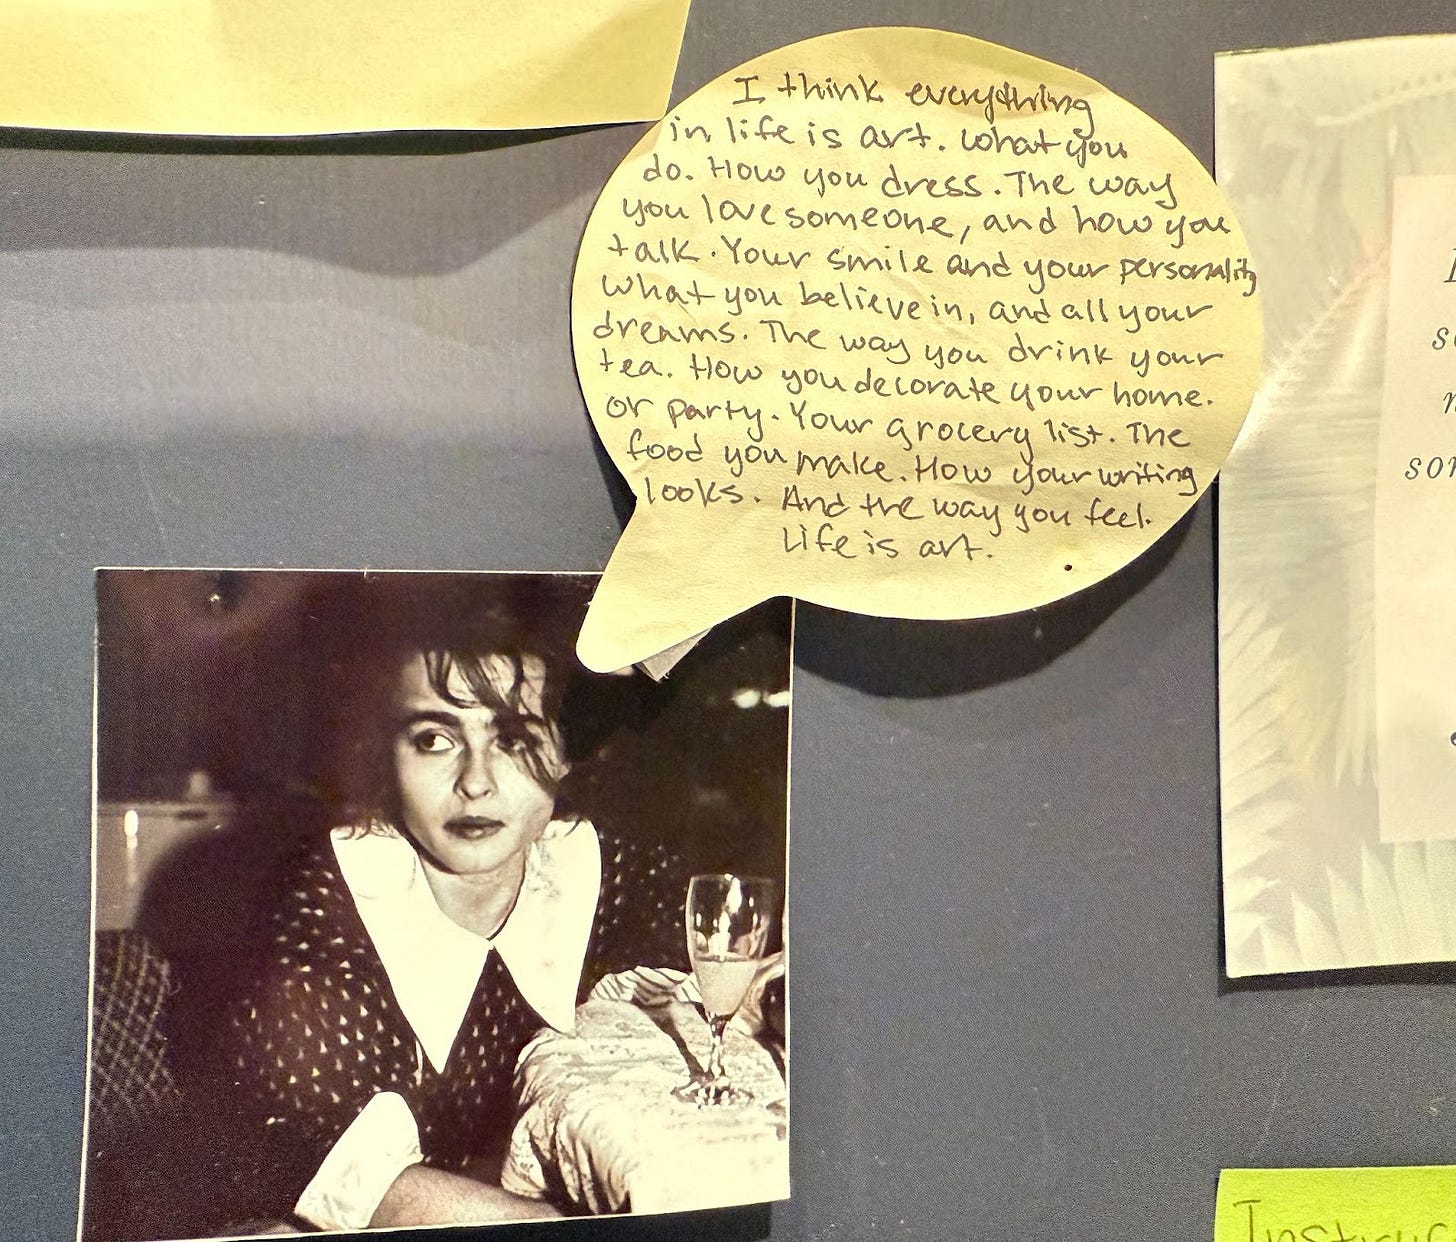 I think everything
in life is art. What you
do. How you dress. The way
you love someone, and how you
talk. Your smile and your personality
what you believe in, and all your
dreams. The way you drink your
tea. How you decorate your home.
or party. Your grocery list. The
food you make. How your writing
looks. And the way you feel.
Life is art.